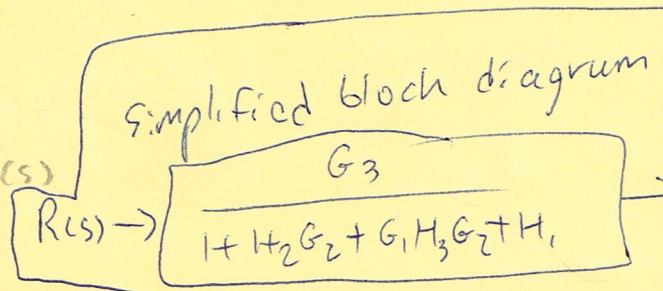 simplified block diagram
(s)
G3
R(s) → 1 + H₂G₂ + G₁H₃G₂ + H₁